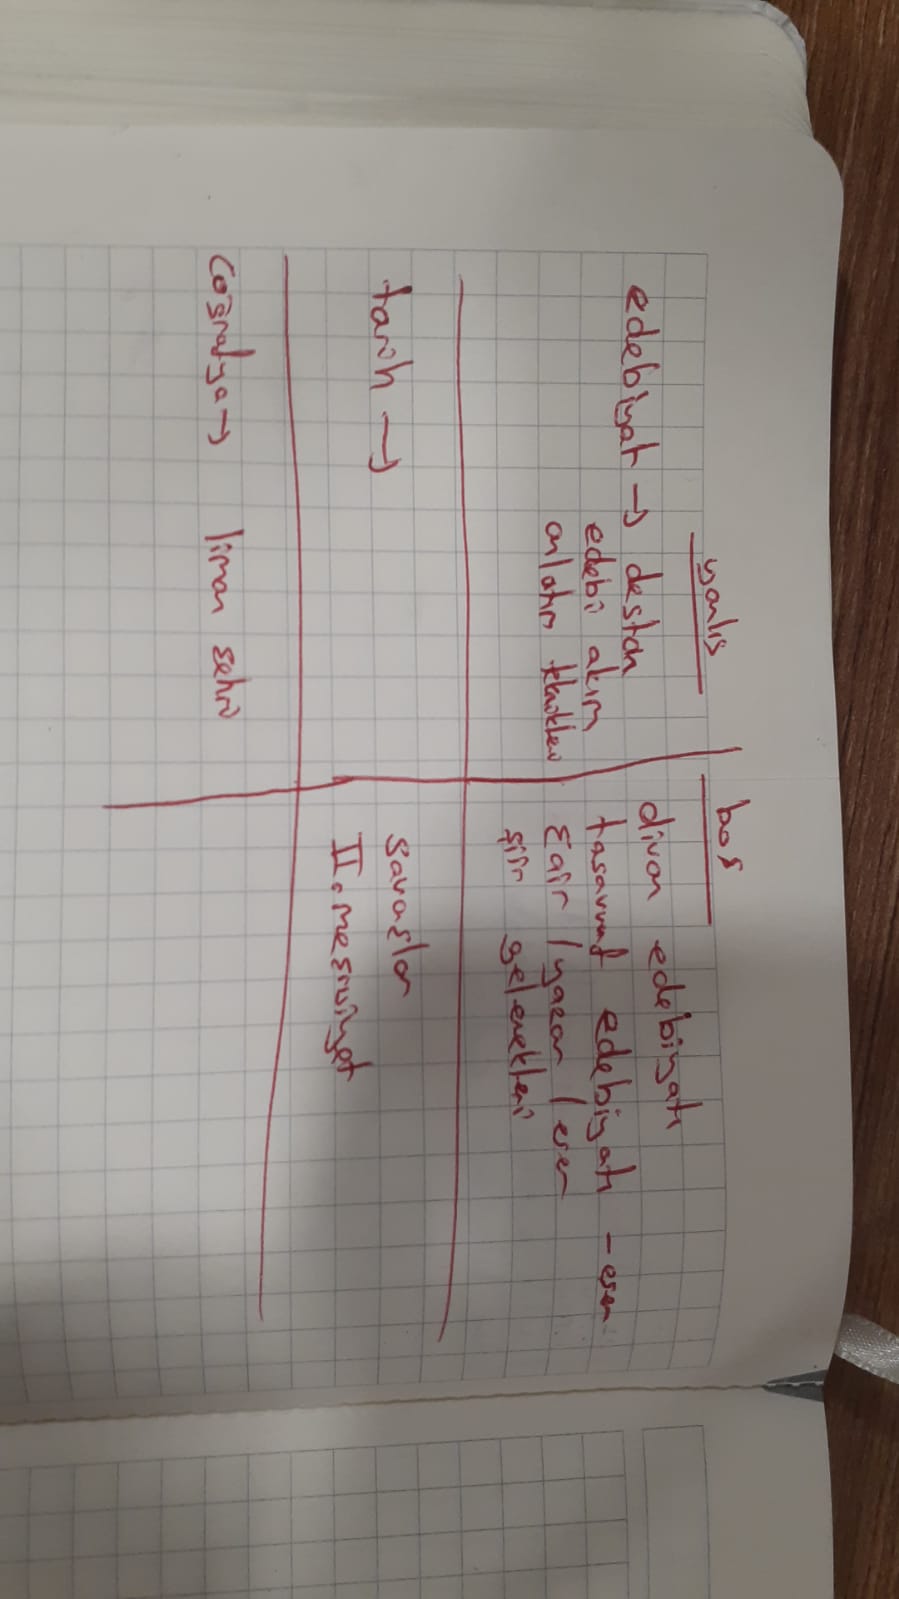 yanlış boş
edebiyat → destan
edebi akım
anlatım teknikleri
divan edebiyatı
tasavvuf edebiyatı - eser
şair / yazar / eser
şiir gelenekleri
tarih →
savaşlar
II. meşruiyet
coğrafya → liman şehri